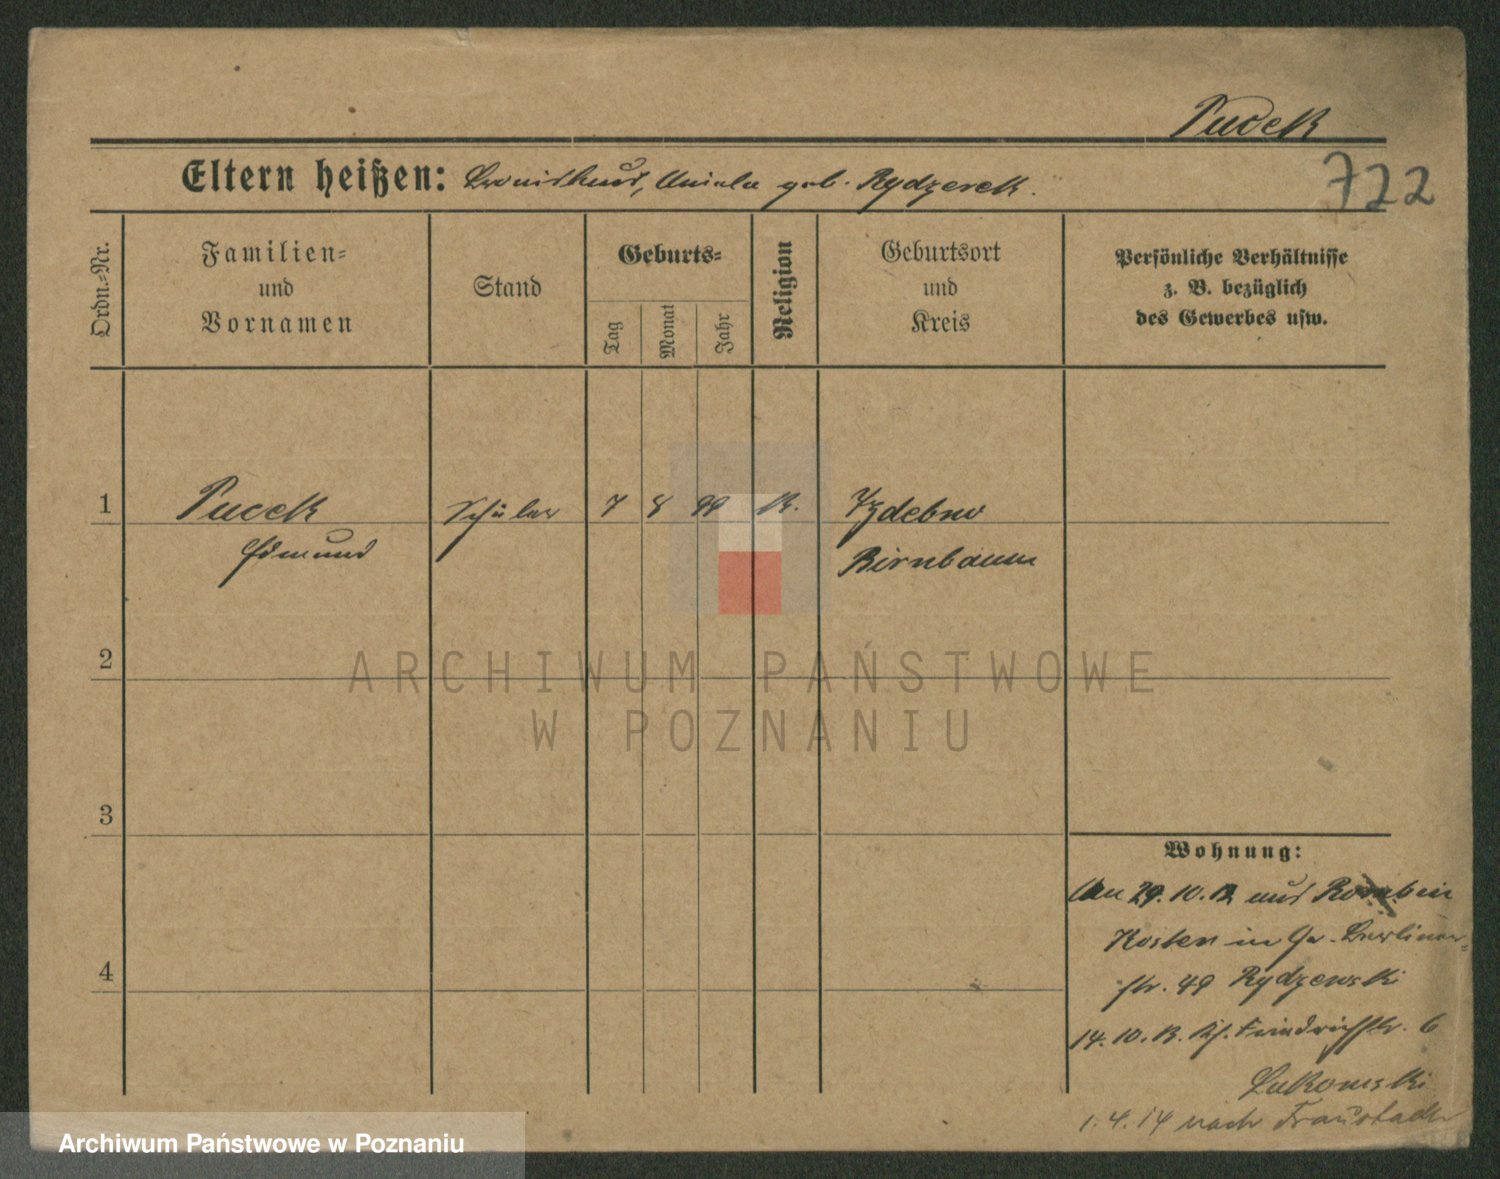 Pucek
Eltern heißen: Bronislaus, Aniela geb. Rydzerek.
722
Ordn.-Nr.
Familien-
und
Vornamen
Stand
Geburts-
Tag
Monat
Jahr
Religion
Geburtsort
und
Kreis
Persönliche Verhältnisse
z. B. bezüglich
des Gewerbes usw.
1
Pucek
Edmund
Schüler
7
8
99
K.
Izdebno
Birnbaum
2
ARCHIWUM PAŃSTWOWE
W POZNANIU
3
4
Wohnung:
An 29.10.12 aus
Kosten in Gr. Berliner-
str. 49 Rydzewski
14.10.13. Friedrichstr. 6
Lukomski
1.4.14 nach Fraustadt
Archiwum Państwowe w Poznaniu